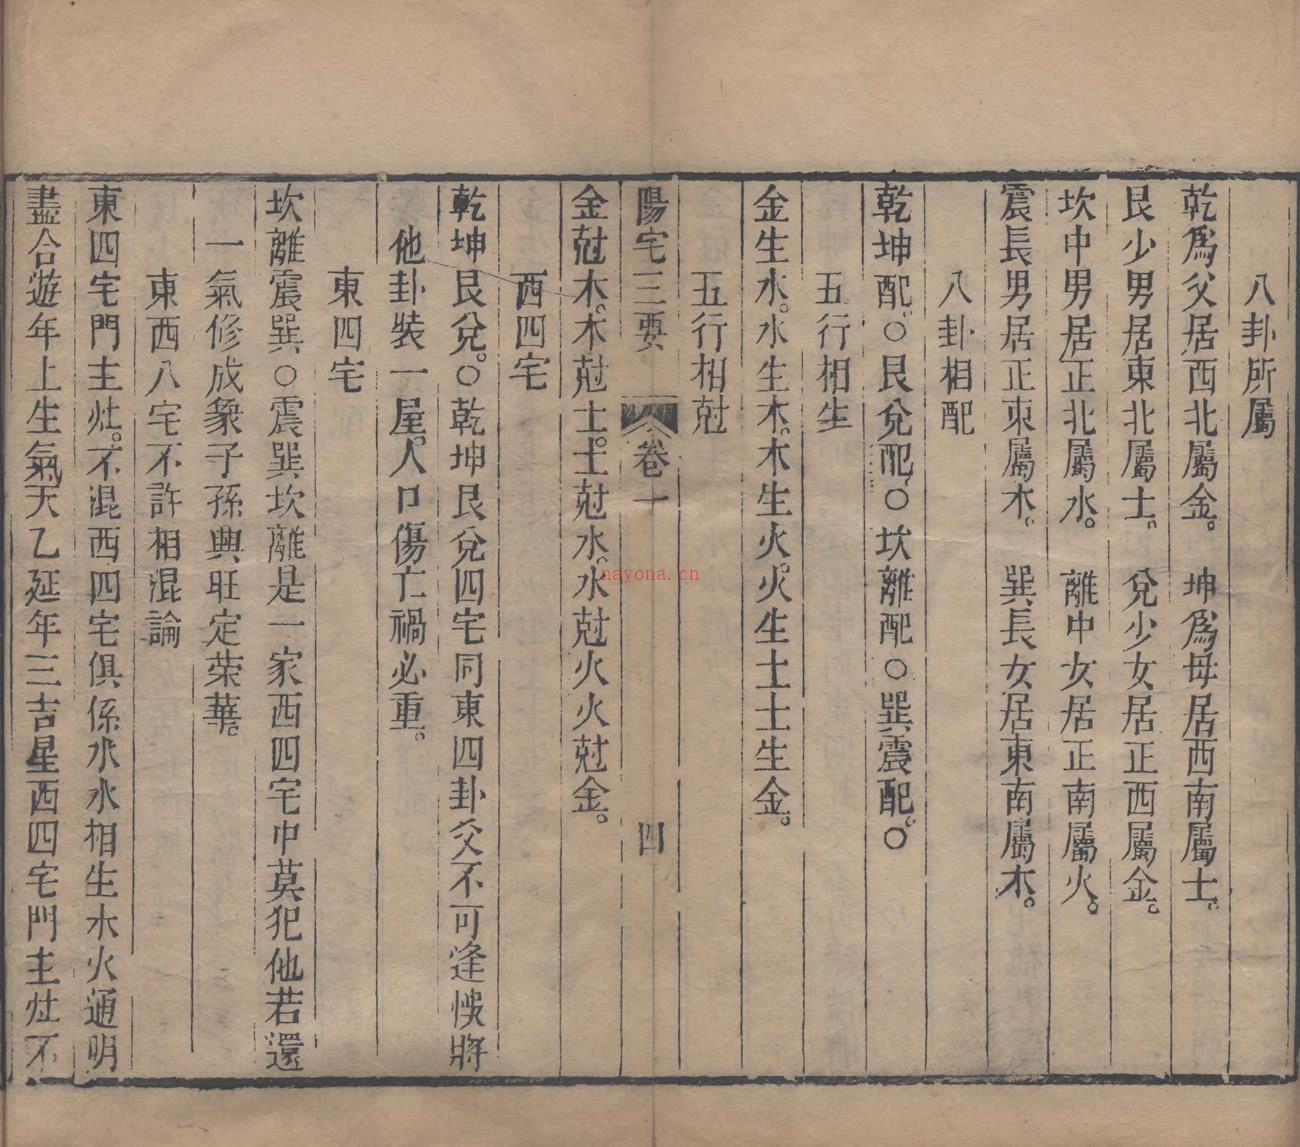 八卦所屬
乾爲父居西北屬金。　坤爲母居西南屬土。
艮少男居東北屬土。　兌少女居正西屬金。
坎中男居正北屬水。　離中女居正南屬火。
震長男居正東屬木。　巽長女居東南屬木。
八卦相配
乾坤配。○艮兌配。○坎離配○巽震配。○
五行相生
金生水。水生木。木生火。火生土土生金。
五行相尅
陽宅三要　卷一　四
金尅木。木尅土。土尅水。水尅火火尅金。
西四宅
乾坤艮兌。○乾坤艮兌四宅同東四卦爻不可逢悞將
他卦裝一屋。人口傷亡禍必重。
東四宅
坎離震巽○震巽坎離是一家西四宅中莫犯他若還
一氣修成象子孫興旺定荣華。
東西八宅不許相混論
東四宅門主灶。不混西四宅俱係水木相生木火通明
盡合遊年上生氣天乙延年三吉星西四宅門主灶不
nayona.cn